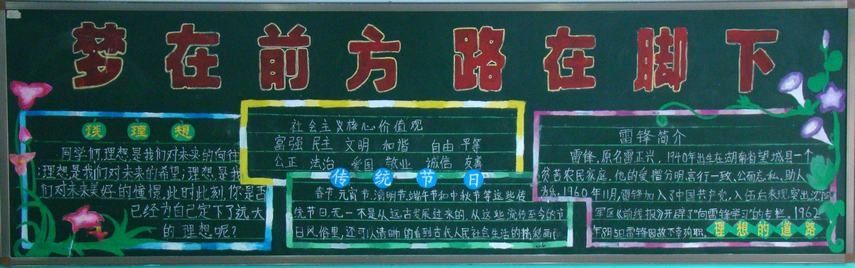 梦在前方路在脚下
谈理想
同学们,理想,是我们对未来的向往
;理想是我们对未来的希望;理想,是我
们对未来美好的憧憬,此时此刻,你是否
已经为自己定下了远大
的理想呢?
社会主义核心价值观
富强 民主 文明 和谐 自由 平等
公正 法治 爱国 敬业 诚信 友善
传统节日
春节、元宵节、清明节、端午节和中秋节等这些传
统节日,无一不是从远古发展过来的,从这些流传至今的节
日风俗里,还可以清晰地看到古代人民社会生活的精彩画
雷锋简介
雷锋,原名雷正兴,1940年出生在湖南省望城县一个
贫苦农民家庭,他的爱憎分明,言行一致,公而忘私,助人
1960年11月,雷锋加入了中国共产党,入伍后表现突出,沈阳
军区《前线报》开辟了"向雷锋学习"的专栏,1962
年8月15日雷锋因故不幸殉职,
理想的道路